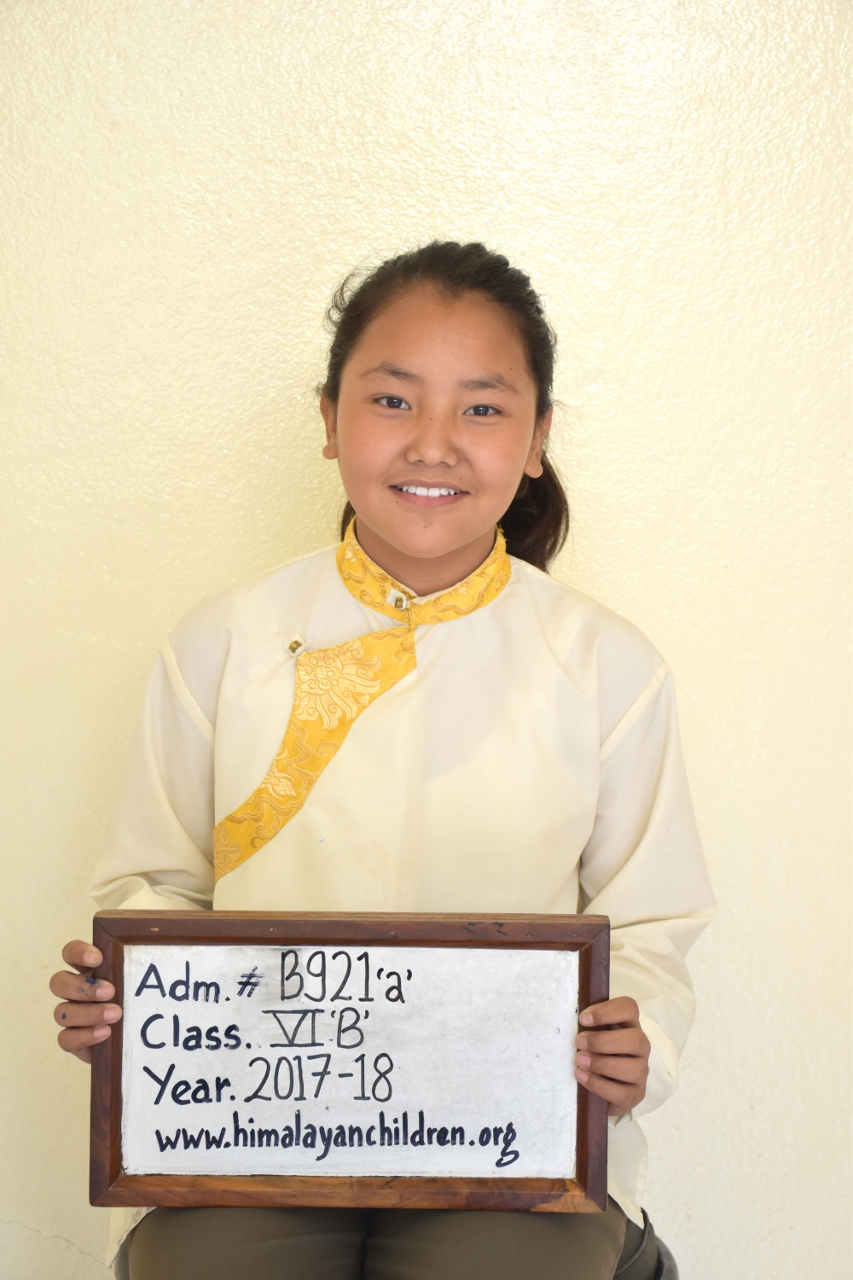 Adm. # B921'a'
Class. VI 'B'
Year. 2017-18
www.himalayanchildren.org